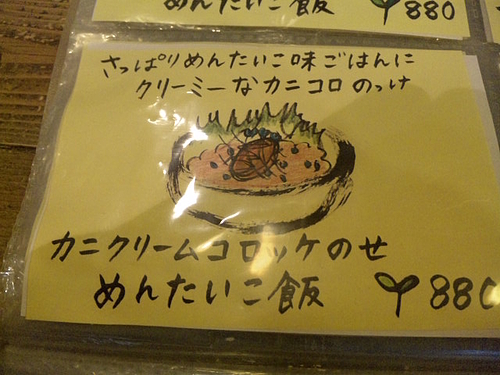 めんたいこ飯 880
さっぱりめんたいこ味ごはんに
クリーミーなカニコロのっけ
カニクリームコロッケのせ
めんたいこ飯 880